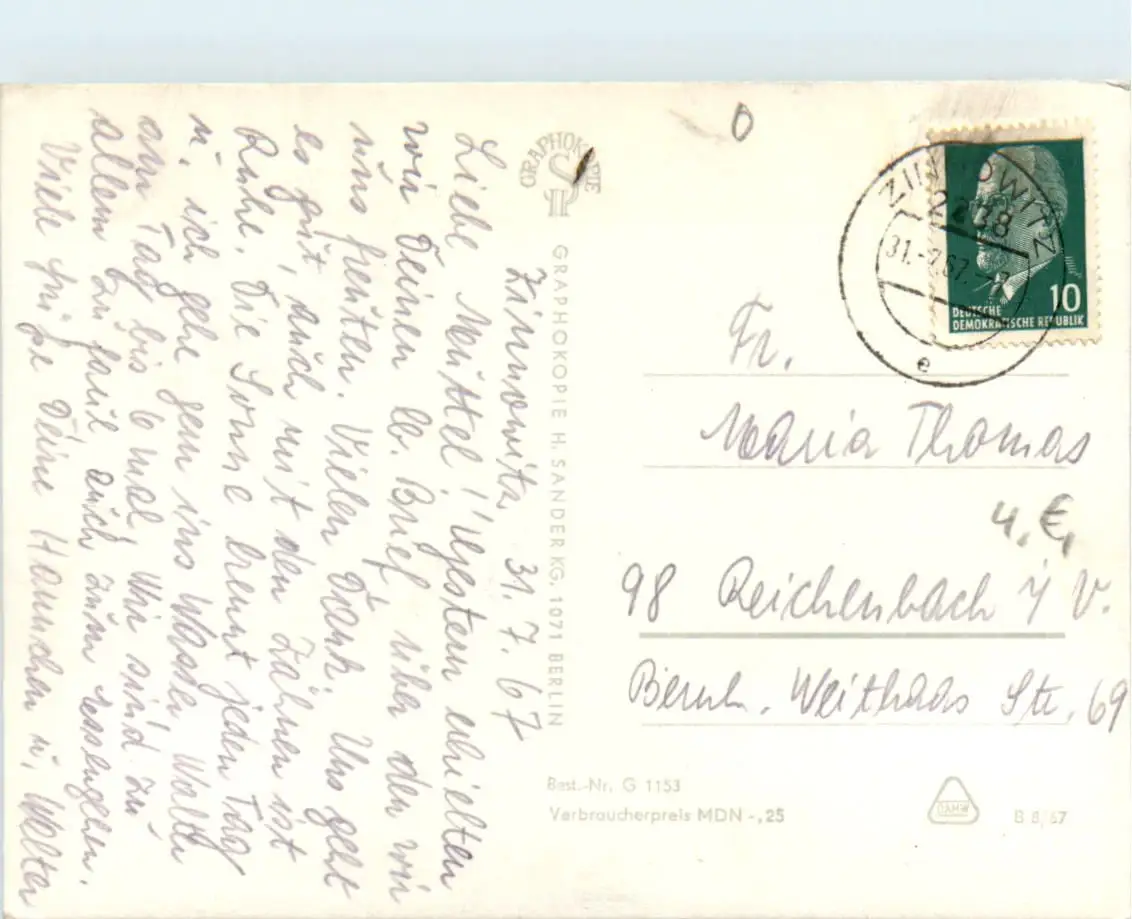 Zinnowitz, 31.7.67
Liebe Muttel! Gestern erhielten
wir Deinen lb. Brief über den wir
uns freuten. Vielen Dank. Uns geht
es gut, auch mit den Zähnen ist
Ruhe. Die Sonne brennt jeden Tag
u. ich gehe gern ins Wasser, Walter
am Tag bis 6 mal. Wir sind zu
allem zu faul auch zum Essengehen.
Viele Grüße Deine Hannchen u. Walter
GRAPHOKOPIE
GRAPHOKOPIE H. SANDER KG, 1071 BERLIN
0
ZINNOWITZ
2238
31.-7.67.-7
e
10
DEUTSCHE
DEMOKRATISCHE REPUBLIK
Fr.
Maria Thomas
4,€,
98 Reichenbach i/ V.
Bernh. Weithaas Str. 69
Best.-Nr. G 1153
Verbraucherpreis MDN -,25
DAMW
B 8/67